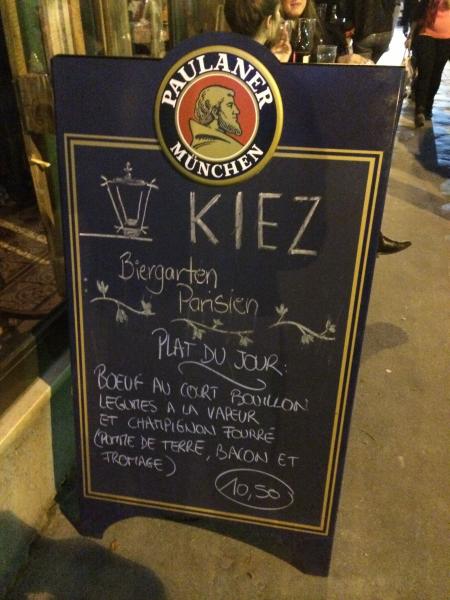 PAULANER
MÜNCHEN
KIEZ
Biergarten
Parisien
PLAT DU JOUR:
BOEUF AU COURT BOUILLON
LEGUMES A LA VAPEUR
ET CHAMPIGNON FOURRÉ
(POMME DE TERRE, BACON ET
FROMAGE)
10,50